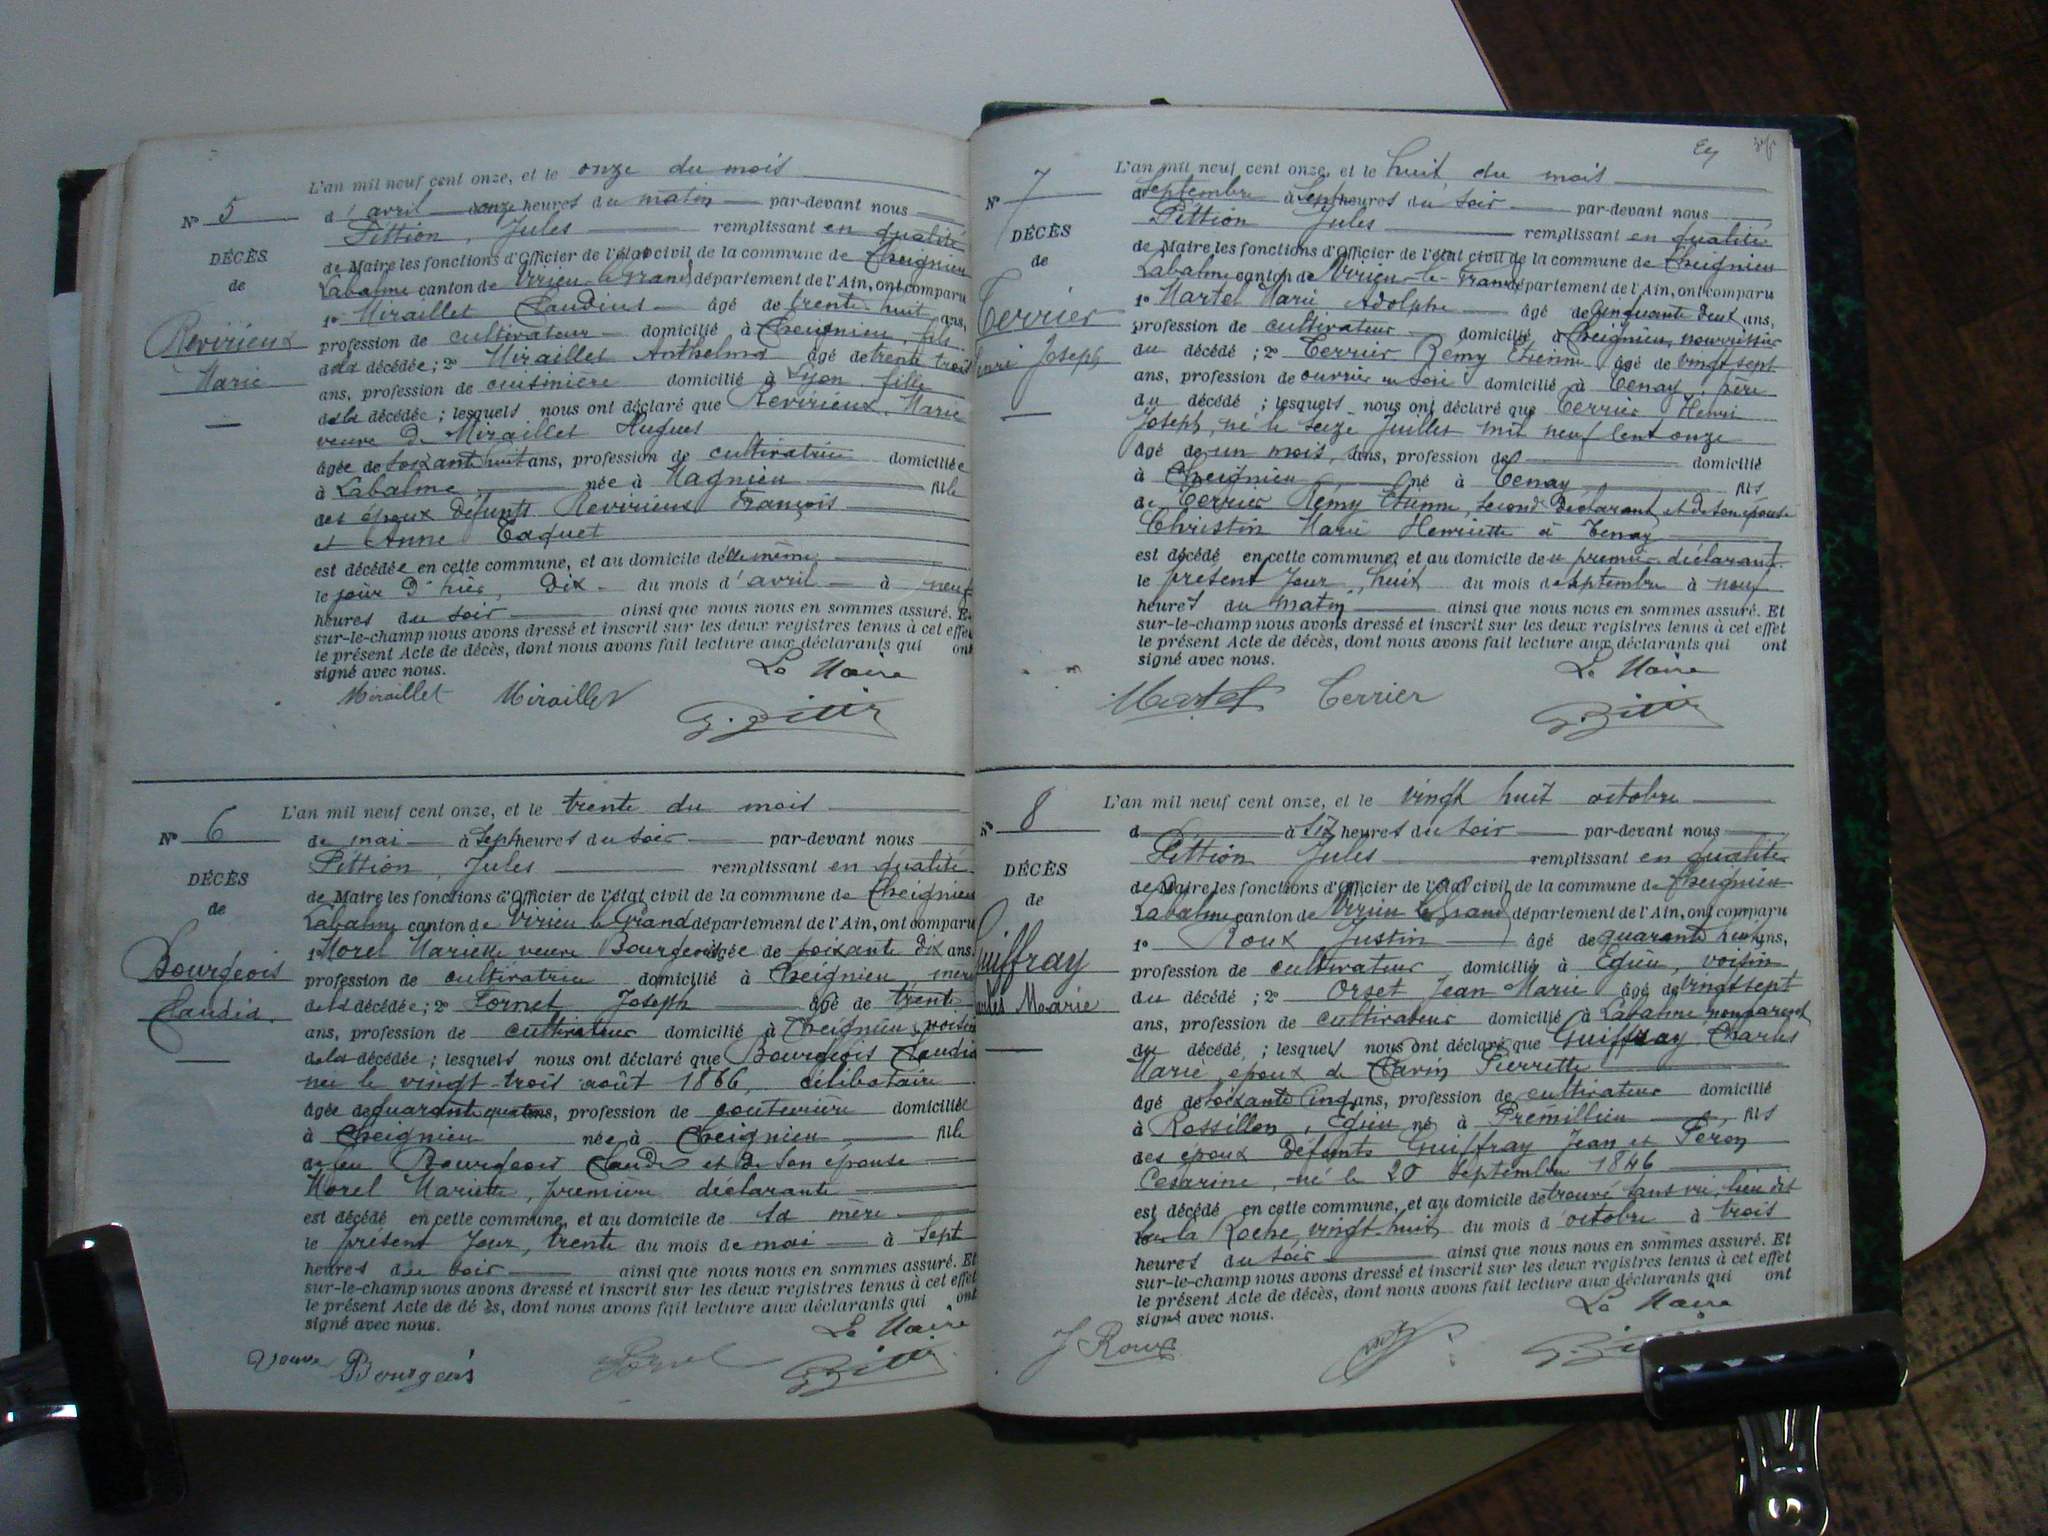 L'an mil neuf cent onze, et le onze du mois
N° 5
d'avril à onze heures du matin par-devant nous
Pittion, Jules remplissant en qualité
DÉCÈS
de Maire les fonctions d'Officier de l'état civil de la commune de Cheignieu
de
Labalme canton de Virieu-le-Grand département de l'Ain, ont comparu
1° Miraillet Claudius âgé de trente huit ans,
Revirieux
profession de cultivateur domicilié à Cheignieu, fils
de la décédée ; 2° Miraillet Anthelma âgé de trente trois
Marie
ans, profession de cuisinière domicilié à Lyon fille
de la décédée ; lesquels nous ont déclaré que Revirieux, Marie
veuve de Miraillet Hugues
âgée de soixante huit ans, profession de cultivatrice domiciliée
à Labalme née à Magnieu fille
des époux défunts Revirieux François
et Anne Taquet
est décédée en cette commune, et au domicile d'elle même
le jour d'hier, dix du mois d'avril à neuf
heures du soir ainsi que nous nous en sommes assuré. Et
sur-le-champ nous avons dressé et inscrit sur les deux registres tenus à cet effet
le présent Acte de décès, dont nous avons fait lecture aux déclarants qui ont
signé avec nous.
Le Maire
Miraillet Miraillet
L'an mil neuf cent onze, et le trente du mois
N° 6
de mai à sept heures du soir par-devant nous
Pittion, Jules remplissant en qualité
DÉCÈS
de Maire les fonctions d'Officier de l'état civil de la commune de Cheignieu
de
Labalme canton de Virieu le Grand département de l'Ain, ont comparu
1° Morel Mariette veuve Bourgeois âgée de soixante dix ans
Bourgeois
profession de cultivatrice domicilié à Cheignieu mère
Claudia
de la décédée ; 2° Fornet Joseph âgé de trente
ans, profession de cultivateur domicilié à Cheignieu, voisin
de la décédée ; lesquels nous ont déclaré que Bourgeois Claudia
née le vingt-trois août 1866, célibataire
âgée de quarante quatre ans, profession de couturière domiciliée
à Cheignieu née à Cheignieu, fille
de feu Bourgeois Claude et de son épouse
Morel Mariette, première déclarante
est décédé en cette commune, et au domicile de sa mère
le présent jour, trente du mois de mai à sept
heures du soir ainsi que nous nous en sommes assuré. Et
sur-le-champ nous avons dressé et inscrit sur les deux registres tenus à cet effet
le présent Acte de décès, dont nous avons fait lecture aux déclarants qui ont
signé avec nous.
Le Maire
Veuve Bourgeois
L'an mil neuf cent onze, et le huit du mois
N° 7
de septembre à sept heures du soir par-devant nous
Pittion Jules remplissant en qualité
DÉCÈS
de Maire les fonctions d'Officier de l'état civil de la commune de Cheignieu
de
Labalme canton de Virieu-le-Grand département de l'Ain, ont comparu
1° Martel Marie Adolphe âgé de cinquante deux ans,
Terrier
profession de cultivateur domicilié à Cheignieu, nourrisseur
Henri Joseph
du décédé ; 2° Terrier Remy Etienne âgé de vingt sept
ans, profession de ouvrier en soie domicilié à Tenay, père
du décédé ; lesquels nous ont déclaré que Terrier Henri
Joseph, né le seize juillet mil neuf cent onze
âgé de un mois, ans, profession de domicilié
à Cheignieu né à Tenay fils
de Terrier Remy Etienne, second déclarant et de son épouse
Christin Marie Henriette à Tenay
est décédé en cette commune, et au domicile du premier déclarant
le présent jour, huit du mois de septembre à neuf
heures du matin ainsi que nous nous en sommes assuré. Et
sur-le-champ nous avons dressé et inscrit sur les deux registres tenus à cet effet
le présent Acte de décès, dont nous avons fait lecture aux déclarants qui ont
signé avec nous.
Le Maire
Martel Terrier
L'an mil neuf cent onze, et le vingt huit octobre
N° 8
d à six heures du soir par-devant nous
Pittion Jules remplissant en qualité
DÉCÈS
de Maire les fonctions d'Officier de l'état civil de la commune de Cheignieu
de
Labalme canton de Virieu le Grand département de l'Ain, ont comparu
1° Roux Justin âgé de quarante huit ans,
Guiffray
profession de cultivateur domicilié à Egieu, voisin
Charles Marie
du décédé ; 2° Orset Jean Marie âgé de vingt sept
ans, profession de cultivateur domicilié à Labalme non parent
du décédé ; lesquels nous ont déclaré que Guiffray Charles
Marie époux de Pierrette
âgé de soixante cinq ans, profession de cultivateur domicilié
à Rossillon, Egieu né à Prémillieu fils
des époux défunts Guiffray Jean et Féron
Césarine, né le 20 septembre 1846
est décédé en cette commune, et au domicile de trouvé sans vie, lieu dit
sur la Roche, vingt-huit du mois d'octobre à trois
heures du soir ainsi que nous nous en sommes assuré. Et
sur-le-champ nous avons dressé et inscrit sur les deux registres tenus à cet effet
le présent Acte de décès, dont nous avons fait lecture aux déclarants qui ont
signé avec nous.
Le Maire
J Roux